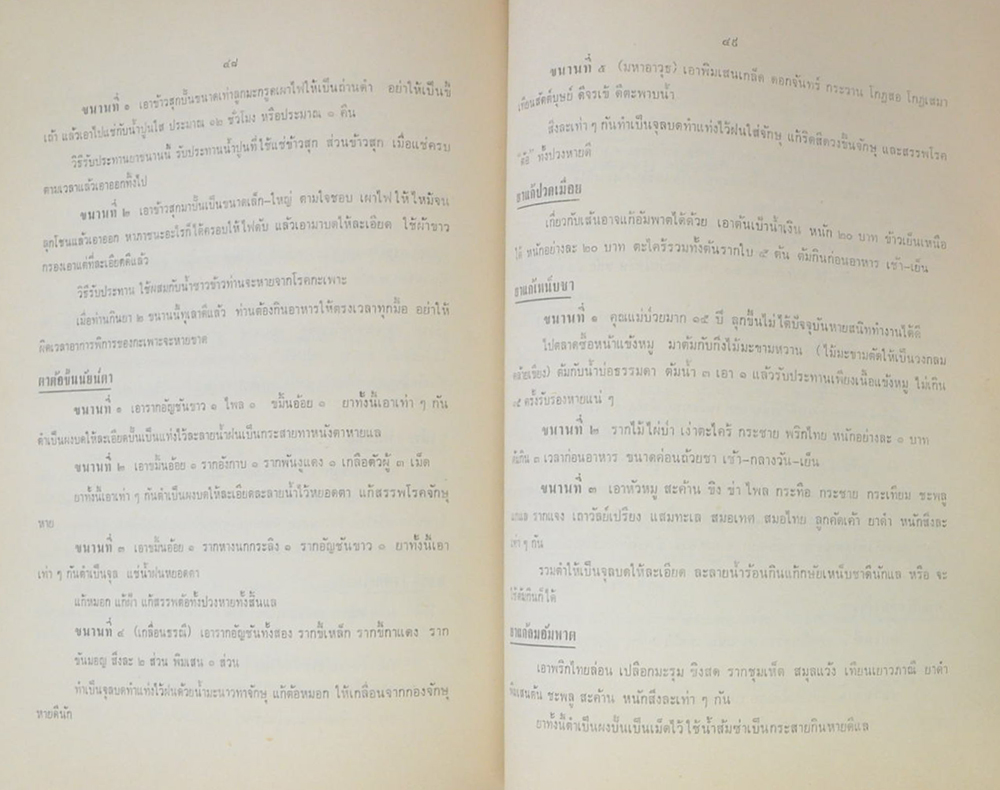 ๔๘
ขนานที่ ๑ เอาข้าวสุกปั้นขนาดเท่าลูกมะกรูดเผาไฟให้เป็นถ่านดำ อย่าให้เป็นขี้
เถ้า แล้วเอาไปแช่กับน้ำปูนใส ประมาณ ๑๒ ชั่วโมง หรือประมาณ ๑ คืน
วิธีรับประทานยาขนานนี้ รับประทานน้ำปูนที่ใช้แช่ข้าวสุก ส่วนข้าวสุก เมื่อแช่ครบ
ตามเวลาแล้วเอาออกทิ้งไป
ขนานที่ ๒ เอาข้าวสุกมาปั้นเป็นขนาดเล็ก–ใหญ่ ตามใจชอบ เผาไฟให้ไหม้จน
ลุกโชนแล้วเอาออก หาภาชนะอะไรก็ได้ครอบให้ไฟดับ แล้วเอามาบดให้ละเอียด ใช้ผ้าขาว
กรองเอาแต่ที่ละเอียดดีแล้ว
วิธีรับประทาน ใช้ผสมกับน้ำซาวข้าวท่านจะหายจากโรคกะเพาะ
เมื่อท่านกินยา ๒ ขนานนี้ทุเลาดีแล้ว ท่านต้องกินอาหารให้ตรงเวลาทุกมื้อ อย่าให้
ผิดเวลาอาการพิการของกะเพาะจะหายขาด
ตาต้อขึ้นนัยน์ตา
ขนานที่ ๑ เอารากอัญชันขาว ๑ ไพล ๑ ขมิ้นอ้อย ๑ ยาทั้งนี้เอาเท่า ๆ กัน
ตำเป็นผงบดให้ละเอียดปั้นเป็นแท่งไว้ละลายน้ำฝนเป็นกระสายทาหนังตาหายแล
ขนานที่ ๒ เอาขมิ้นอ้อย ๑ รากอังกาบ ๑ รากพันงูแดง ๑ เกลือตัวผู้ ๓ เม็ด
ยาทั้งนี้เอาเท่า ๆ กันตำเป็นผงบดให้ละเอียดละลายน้ำไว้หยอดตา แก้สรรพโรคจักษุ
หาย
ขนานที่ ๓ เอาขมิ้นอ้อย ๑ รากหางนกกระลิง ๑ รากอัญชันขาว ๑ ยาทั้งนี้เอา
เท่า ๆ กันตำเป็นจุล แช่น้ำฝนหยอดตา
แก้หมอก แก้ฝ้า แก้สรรพต้อทั้งปวงหายทั้งสิ้นแล
ขนานที่ ๔ (เกลื่อนธรณี) เอารากอัญชันทั้งสอง รากขี้เหล็ก รากขี้กาแดง ราก
ขันมอญ สิ่งละ ๒ ส่วน พิมเสน ๑ ส่วน
ทำเป็นจุลบดทำแท่งไว้ฝนด้วยน้ำมะนาวทาจักษุ แก้ต้อหมอก ให้เกลื่อนจากกองจักษุ
หายดีนัก
๔๙
ขนานที่ ๕ (มหาอาวุธ) เอาพิมเสนเกล็ด ดอกจันทร์ กระวาน โกฏสอ โกฏเสมา
เทียนสัตต์บุษย์ ดีจรเข้ ดีตะพาบน้ำ
สิ่งละเท่า ๆ กันทำเป็นจุลบดทำแท่งไว้ฝนใส่จักษุ แก้ริดสีดวงขึ้นจักษุ และสรรพโรค
“ต้อ” ทั้งปวงหายดี
ยาแก้ปวดเมื่อย
เกี่ยวกับเส้นอาจแก้อัมพาตได้ด้วย เอาต้นเบ้าน้ำเงิน หนัก ๒๐ บาท ข้าวเย็นเหนือ
ใต้ หนักอย่างละ ๒๐ บาท ตะไคร้รวมทั้งต้นรากใบ ๕ ต้น ต้มกินก่อนอาหาร เช้า–เย็น
ยาแก้เหน็บชา
ขนานที่ ๑ คุณแม่ป่วยมาก ๑๕ ปี ลุกขึ้นไม่ได้ปัจจุบันหายสนิททำงานได้ดี
ไปตลาดซื้อหน้าแข้งหมู มาต้มกับกิ่งไม้มะขามหวาน (ไม้มะขามตัดให้เป็นวงกลม
คล้ายเขียง) ต้มกับน้ำบ่อธรรมดา ต้มน้ำ ๓ เอา ๑ แล้วรับประทานเพียงเนื้อแข้งหมู ไม่เกิน
๑๕ ครั้งรับรองหายแน่ ๆ
ขนานที่ ๒ รากไม้ไผ่ป่า เง่าตะไคร้ กระชาย พริกไทย หนักอย่างละ ๑ บาท
ต้มกิน ๓ เวลาก่อนอาหาร ขนาดค่อนถ้วยชา เช้า–กลางวัน–เย็น
ขนานที่ ๓ เอาหัวหมู สะค้าน ขิง ข่า ไพล กระทือ กระชาย กระเทียม ชะพลู
รากแจง เถาวัลย์เปรียง แสมทะเล สมอเทศ สมอไทย ลูกคัดเค้า ยาดำ หนักสิ่งละ
เท่า ๆ กัน
รวมตำให้เป็นจุลบดให้ละเอียด ละลายน้ำร้อนกินแก้กษัยเหน็บชาดีนักแล หรือ จะ
ใช้ต้มกินก็ได้
ยาแก้ลมอัมพาต
เอาพริกไทยล่อน เปลือกมะรุม ขิงสด รากชุมเห็ด สมุลแว้ง เทียนเยาวภาณี ยาดำ
พิมเสนต้น ชะพลู สะค้าน หนักสิ่งละเท่า ๆ กัน
ยาทั้งนี้ตำเป็นผงปั้นเป็นเม็ดไว้ ใช้น้ำส้มซ่าเป็นกระสายกินหายดีแล